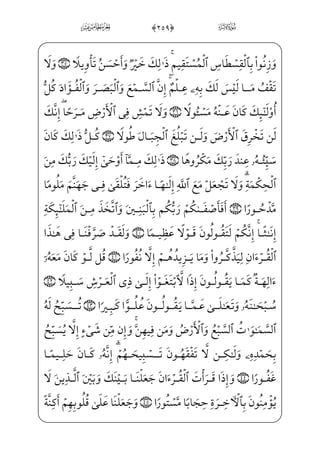 ﴿٢٥٩﴾
وَزِنُوا۟ بِٱلْقِسْطَاسِ ٱلْمُسْتَقِيمِ ۚ ذَٰلِكَ خَيْرٌ وَأَحْسَنُ تَأْوِيلًا ﴿٣٥﴾ وَلَا
تَقْفُ مَا لَيْسَ لَكَ بِهِۦ عِلْمٌ ۚ إِنَّ ٱلسَّمْعَ وَٱلْبَصَرَ وَٱلْفُؤَادَ كُلُّ
أُو۟لَٰٓئِكَ كَانَ عَنْهُ مَسْـُٔولًا ﴿٣٦﴾ وَلَا تَمْشِ فِى ٱلْأَرْضِ مَرَحًا ۖ إِنَّكَ
لَن تَخْرِقَ ٱلْأَرْضَ وَلَن تَبْلُغَ ٱلْجِبَالَ طُولًا ﴿٣٧﴾ كُلُّ ذَٰلِكَ كَانَ
سَيِّئُهُۥ عِندَ رَبِّكَ مَكْرُوهًا ﴿٣٨﴾ ذَٰلِكَ مِمَّآ أَوْحَىٰٓ إِلَيْكَ رَبُّكَ مِنَ
ٱلْحِكْمَةِ ۗ وَلَا تَجْعَلْ مَعَ ٱللَّهِ إِلَٰهًا ءَاخَرَ فَتُلْقَىٰ فِى جَهَنَّمَ مَلُومًا
مَّدْحُورًا ﴿٣٩﴾ أَفَأَصْفَىٰكُمْ رَبُّكُم بِٱلْبَنِينَ وَٱتَّخَذَ مِنَ ٱلْمَلَٰٓئِكَةِ
إِنَٰثًا ۚ إِنَّكُمْ لَتَقُولُونَ قَوْلًا عَظِيمًا ﴿٤٠﴾ وَلَقَدْ صَرَّفْنَا فِى هَٰذَا
ٱلْقُرْءَانِ لِيَذَّكَّرُوا۟ وَمَا يَزِيدُهُمْ إِلَّا نُفُورًا ﴿٤١﴾ قُل لَّوْ كَانَ مَعَهُۥٓ
ءَالِهَةٌ كَمَا يَقُولُونَ إِذًا لَّٱبْتَغَوْا۟ إِلَىٰ ذِى ٱلْعَرْشِ سَبِيلًا ﴿٤٢﴾
سُبْحَٰنَهُۥ وَتَعَٰلَىٰ عَمَّا يَقُولُونَ عُلُوًّا كَبِيرًا ﴿٤٣﴾ تُسَبِّحُ لَهُ
ٱلسَّمَٰوَٰتُ ٱلسَّبْعُ وَٱلْأَرْضُ وَمَن فِيهِنَّ ۚ وَإِن مِّن شَىْءٍ إِلَّا يُسَبِّحُ
بِحَمْدِهِۦ وَلَٰكِن لَّا تَفْقَهُونَ تَسْبِيحَهُمْ ۗ إِنَّهُۥ كَانَ حَلِيمًا
غَفُورًا ﴿٤٤﴾ وَإِذَا قَرَأْتَ ٱلْقُرْءَانَ جَعَلْنَا بَيْنَكَ وَبَيْنَ ٱلَّذِينَ لَا
يُؤْمِنُونَ بِٱلْءَاخِرَةِ حِجَابًا مَّسْتُورًا ﴿٤٥﴾ وَجَعَلْنَا عَلَىٰ قُلُوبِهِمْ أَكِنَّةً